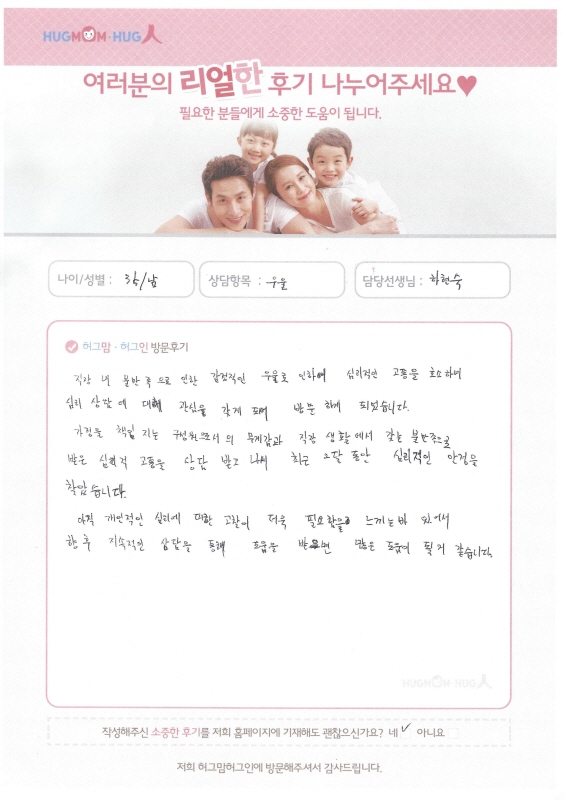 HUGMOM·HUG人
여러분의 리얼한 후기 나누어주세요♥
필요한 분들에게 소중한 도움이 됩니다.
나이/성별 : 35/남 상담항목 : 우울 담당선생님 : 하현숙
허그맘 · 허그인 방문후기
직장 내 불만족으로 인한 감정적인 우울로 인하여 심리적인 고통을 호소하여
심리 상담에 대해 관심을 갖게 되며 방문하게 되었습니다.
가정을 책임지는 구성원으로서의 무게감과 직장 생활에서 갖는 불만족으로
받은 심리적 고통을 상담 받고 나서 최근 2달 동안 심리적인 안정을
찾았습니다.
아직 개인적인 심리에 대한 고찰이 더욱 필요함을 느끼는바 있어서
향후 지속적인 상담을 통해 도움을 받으면 많은 도움이 될거 같습니다.
HUGMOM·HUG人
작성해주신 소중한 후기를 저희 홈페이지에 기재해도 괜찮으신가요? 네 ✓ 아니요
저희 허그맘허그인에 방문해주셔서 감사드립니다.